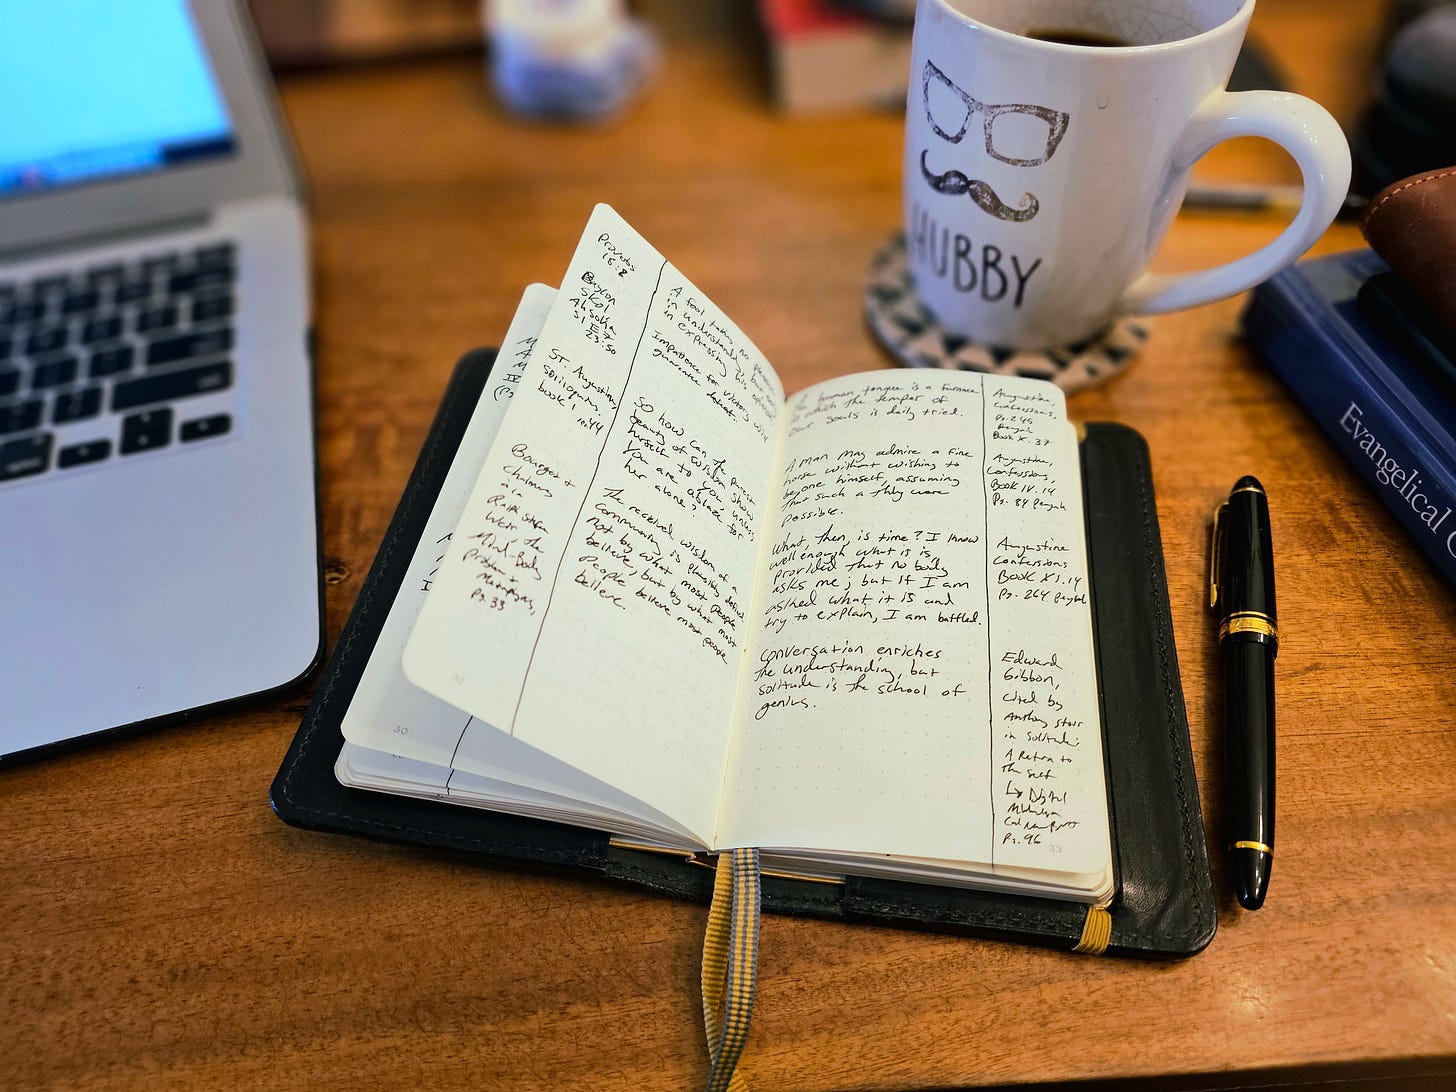 Proverbs
18:2
A fool takes no
in understanding but
in expressing his
Baylon
Skol
Ahsoka
S1 E7
23:50
Impatience for victory will
guarantee defeat.
ST. Augustine,
soliloquies,
book 1
So how can the
beauty of wisdom show
herself to you, unless
you are ablaze for
her alone?
Bourget +
Chalmers
à la
Ralph Stefan
Weir the
Mind-Body
Problem +
Metaphysics,
Pg. 33
The received wisdom of a
community is plausibly defined
not by what most people
believe, but by what most
people believe most people
believe.
30
human tongue is a furnace
in which the temper of
our souls is daily tried.
Augustine,
Confessions,
Pg. 245
Penguin
Book X. 37
A man may admire a fine
horse without wishing to
be one himself, assuming
that such a thing were
possible.
Augustine,
Confessions,
Book IV. 14
Pg. 84 penguin
What then, is time? I know
well enough what it is,
provided that no body
asks me; but if I am
asked what it is and
try to explain, I am baffled.
Augustine
Confessions
Book XI. 14
Pg. 264 penguin
Conversation enriches
the understanding, but
solitude is the school of
genius.
Edward
Gibbon,
cited by
Anthony Storr
in Solitude:
A Return to
the self
↳ Digital
Minimalism
Cal Newport
Pg. 96
33
HUBBY
Evangelical